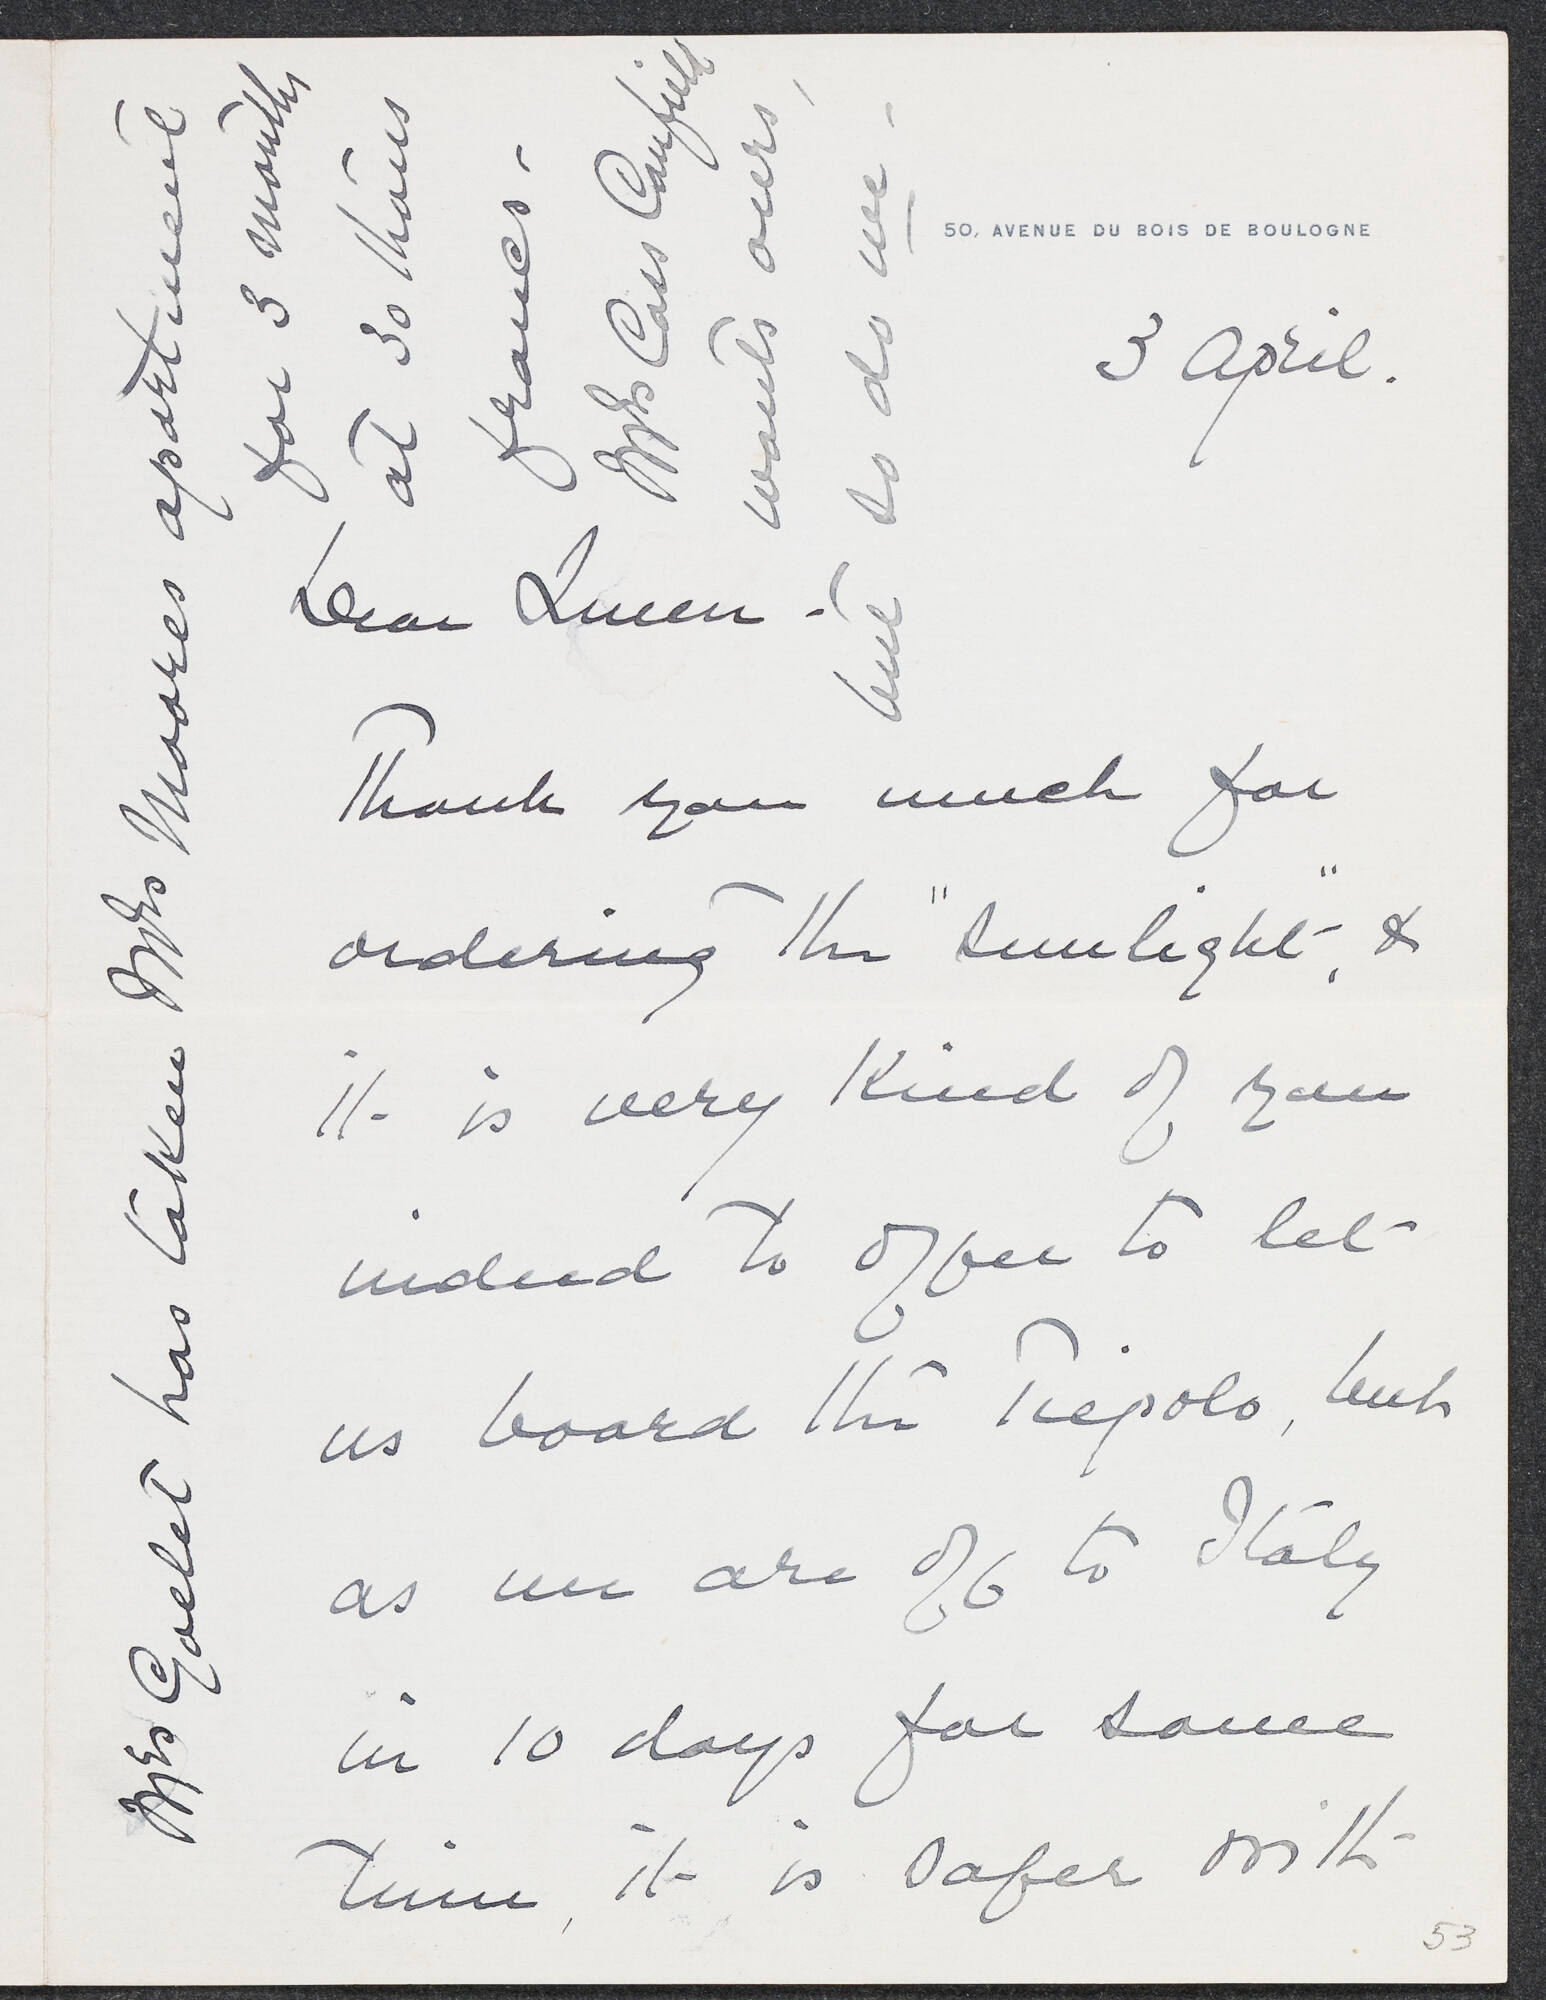 50, AVENUE DU BOIS DE BOULOGNE
3 April.
Dear Queen -
Thank you much for
ordering the "Sunlight", &
it is very kind of you
indeed to offer to let
us board the Tiepolo, but
as we are off to Italy
in 10 days for some
time, it is safer with
53
Mrs Goelet has taken Mrs Moores apartment
for 3 months
at 30 thous
francs -
Mrs Cass Canfield
wants ours,
but so do we -